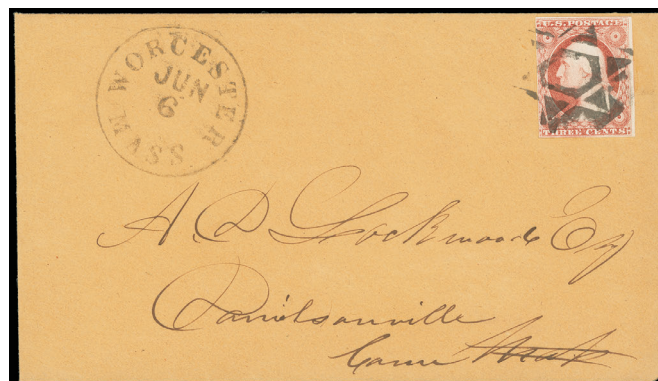 WORCESTER
JUN
6
MASS
U.S. POSTAGE
THREE CENTS
A. D. Lockwood Esq
Danielsonville
Conn